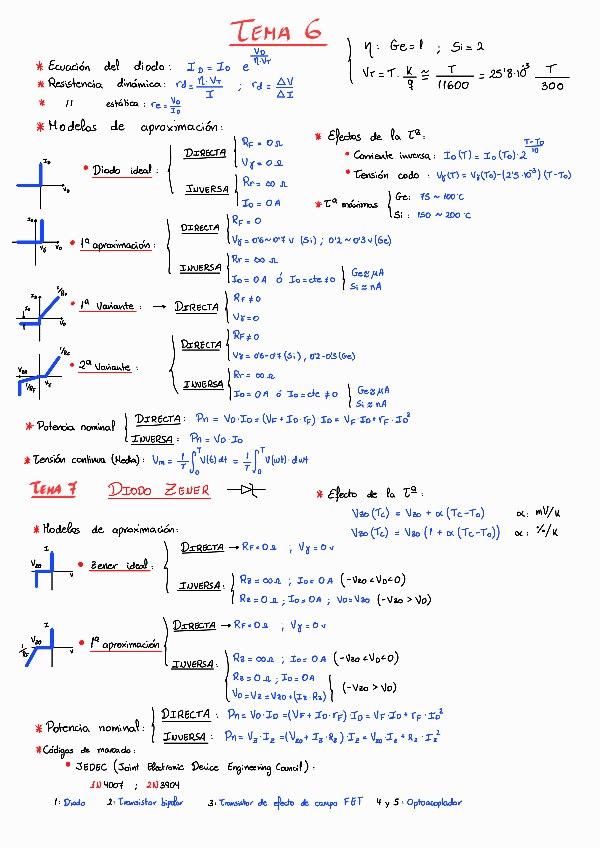 TEMA 6
* Ecuación del diodo: I_D = I_o e^(V_D/η·V_T)
η: Ge=1 ; Si=2
V_T = T·K/q ≅ T/11600 = 25'8·10^-3 T/300
* Resistencia dinámica: r_d = η·V_T/I ; r_d = ΔV/ΔI
* " estática: r_e = V_D/I_D
* Modelos de aproximación:
* Efectos de la Tª:
• Corriente inversa: I_o(T) = I_o(T_o)·2^(T-T_o/10)
• Tensión codo: Vγ(T) = Vγ(T_o)-(2'5·10^-3)(T-T_o)
* Tª máximas { Ge: 75 ~ 100°C
Si: 150 ~ 200°C
• Diodo ideal: DIRECTA { R_F = 0Ω
Vγ = 0Ω
INVERSA { R_r = ∞Ω
I_o = 0A
• 1ª aproximación: DIRECTA { R_F = 0
Vγ = 0'6~0'7v (Si) ; 0'2~0'3v (Ge)
INVERSA { R_r = ∞Ω
I_o = 0A ó I_o = cte ≠ 0 { Ge ≈ μA
Si ≈ nA
• 1ª Variante: → DIRECTA { R_F ≠ 0
Vγ = 0
• 2ª Variante: DIRECTA { R_F ≠ 0
Vγ = 0'6-0'7 (Si), 0'2-0'3 (Ge)
INVERSA { R_r = ∞Ω
I_o = 0A ó I_o = cte ≠ 0 { Ge ≈ μA
Si ≈ nA
* Potencia nominal { DIRECTA: P_n = V_D·I_D = (V_F + I_D·r_F)·I_D = V_F·I_D + r_F·I_D²
INVERSA: P_n = V_D·I_o
* Tensión continua (Media): V_m = 1/T ∫_0^T V(t) dt = 1/T ∫_0^T V(wt)·dwt
TEMA 7 DIODO ZENER
* Efecto de la Tª:
V_Zo(T_C) = V_Zo + α(T_C-T_o) α: mV/K
V_Zo(T_C) = V_Zo(1 + α(T_C-T_o)) α: %/K
* Modelos de aproximación:
• Zener ideal: DIRECTA → R_F = 0Ω ; Vγ = 0v
INVERSA: { R_Z = ∞Ω ; I_D = 0A (-V_Zo < V_D < 0)
R_Z = 0Ω ; I_D = 0A ; V_D = V_Zo (-V_Zo > V_D)
• 1ª aproximación DIRECTA → R_F = 0Ω ; Vγ = 0v
INVERSA: { R_Z = ∞Ω ; I_D = 0A (-V_Zo < V_D < 0)
R_Z = 0Ω ; I_D = 0A
V_D = V_Z = V_Zo + (I_Z·R_Z) } (-V_Zo > V_D)
* Potencia nominal: { DIRECTA: P_n = V_D·I_D = (V_F + I_D·r_F) I_D = V_F·I_D + r_F·I_D²
INVERSA: P_n = V_Z·I_Z = (V_Zo + I_Z·R_Z) I_Z = V_Zo·I_Z + R_Z·I_Z²
* Códigos de marcado:
• JEDEC (Joint Electronic Device Engineering Council):
1N4007 ; 2N3904
1: Diodo 2: Transistor bipolar 3: Transistor de efecto de campo FET 4 y 5: Optoacoplador